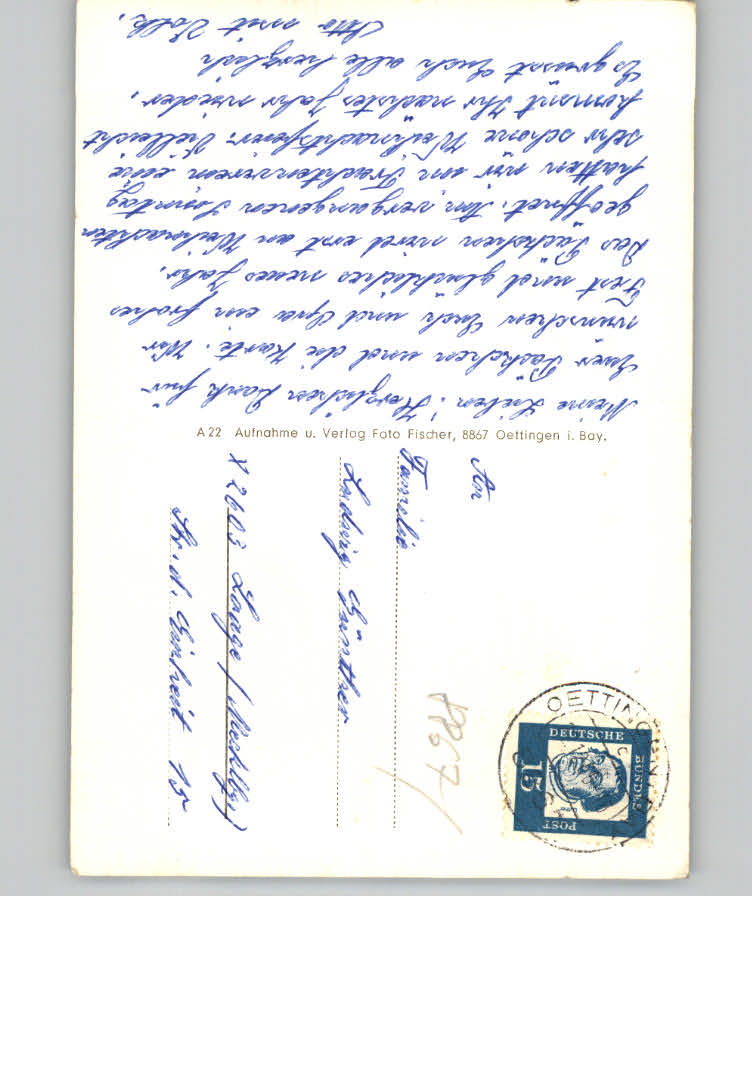 Meine Lieben! Herzlichen Dank für
Euer Päckchen und die Karte. Wir
wünschen Euch und Opa ein frohes
Fest und glückliches neues Jahr.
Das Päckchen wird erst an Weihnachten
geöffnet. Am vergangenen Sonntag
hatten wir im Trachtenverein eine
sehr schöne Weihnachtsfeier. Vielleicht
kommt Ihr nächstes Jahr wieder.
Es grüsst Euch alle herzlich
Otto mit Volk.
A 22 Aufnahme u. Verlag Foto Fischer, 8867 Oettingen i. Bay.
An
Familie
Ludwig Günther
X 2603 Laage / Mecklbg.)
Str. d. Einheit 15
8867
OETTINGEN
DEUTSCHE
BUNDES
POST
15